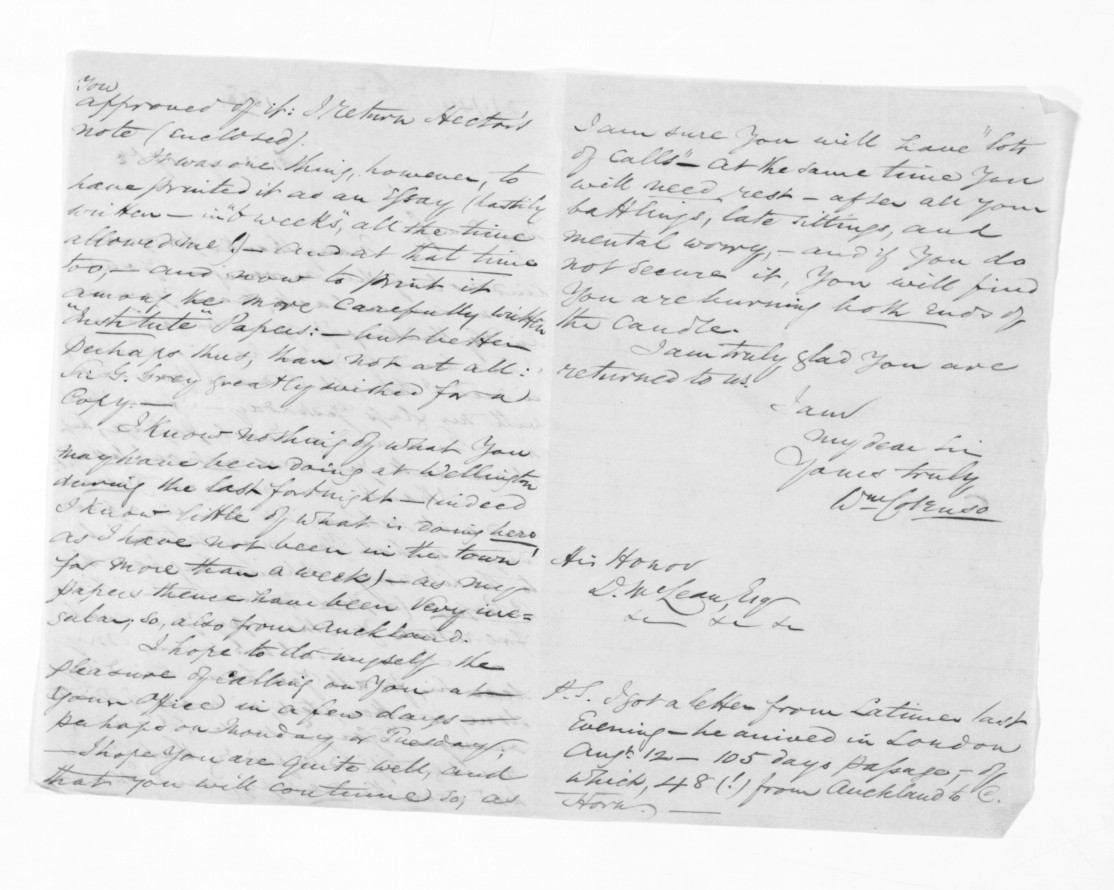 You
approved of it: I return Hector's
note (enclosed).
It was one thing, however, to
have printed it as an Essay (hastily
written – in "6 weeks", all the time
allowed me!) – and at that time
too, – and now to print it
among the more carefully written
"Institute" Papers: – but better
perhaps thus, than not at all:
Sir G. Grey greatly wished for a
Copy. –
I know nothing of what You
may have been doing at Wellington
during the last fortnight – (indeed
I know little of what is doing here
as I have not been in the town!
for more than a week) – as my
papers thence have been very irre=
gular; so, also from Auckland.
I hope to do myself the
pleasure of calling on You at
Your Office in a few days –
perhaps on Monday or Tuesday;
– I hope You are quite well, and
that You will continue so; as
I am sure You will have "lots
of calls" – at the same time You
will need rest – after all your
battlings, late sittings, and
mental worry, – and if You do
not secure it, You will find
You are burning both Ends of
the Candle.
I am truly glad You are
returned to us.
I am
My dear Sir
Yours truly
Wm Colenso
His Honor
D. McLean, Esq
&c &c &c
P.S. I got a letter from Latimer last
Evening – he arrived in London
Augt. 12 – 105 days passage, – of
which, 48 (!) from Auckland to C.
Horn. –